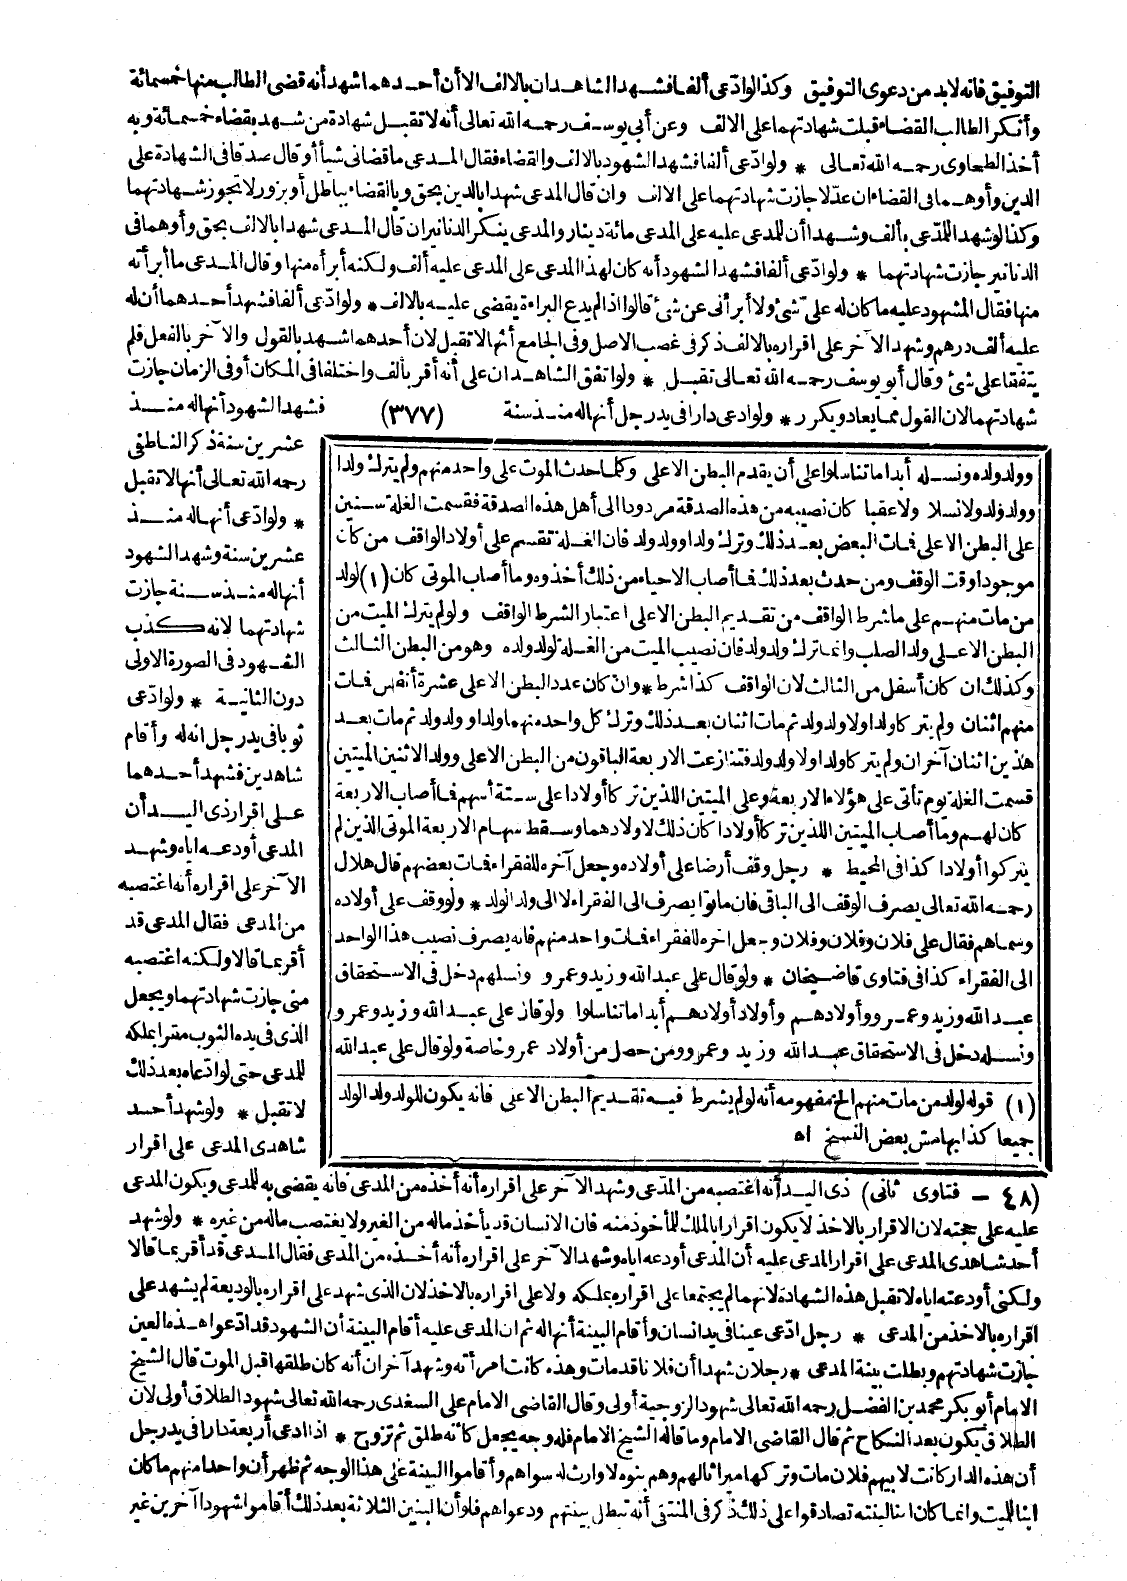 التوفيق فانه لابد من دعوى التوفيق وكذا لو ادّعى ألفا فشهد الشاهدان بالالف الا أن أحدهما شهد أنه قضى الطالب منها خمسمائة
وأنكر الطالب القضاء قبلت شهادتهما على الالف وعن أبي يوسف رحمه الله تعالى أنه لا تقبل شهادة من شهد بقضاء خمسمائة وبه
أخذ الطحاوى رحمه الله تعالى * ولو ادّعى ألفا فشهد الشهود بالالف والقضاء فقال المدعى ما قضانى شيأ أو قال صدقا فى الشهادة على
الدين وأوهما فى القضاء ان عدّلا جازت شهادتهما على الالف وان قال المدعى شهدا بالدين بحق وبالقضاء بباطل أو بزور لا تجوز شهادتهما
وكذا لو شهد اللمدّعى بألف وشهدا أن للمدعى عليه على المدعى مائة دينار والمدعى ينكر الدنانير ان قال المدعى شهدا بالالف بحق وأوهما فى
الدنانير جازت شهادتهما * ولو ادّعى ألفا فشهد الشهود أنه كان لهذا المدعى على المدعى عليه ألف ولكنه أبرأه منها وقال المدعى ما أبرأته
منها فقال المشهود عليه ما كان له علىّ شئ ولا أبرأنى عن شئ قالوا اذا لم يدع البراءة يقضى عليه بالالف * ولو ادّعى ألفا فشهد أحدهما أن له
عليه ألف درهم وشهد الآخر على اقراره بالالف ذكر فى غصب الاصل وفى الجامع أنها لا تقبل لان أحدهما شهد بالقول والآخر بالفعل فلم
يتفقا على شئ وقال أبو يوسف رحمه الله تعالى تقبل * ولو اتفق الشاهدان على أنه أقر بألف واختلفا فى المكان أو فى الزمان جازت
شهادتهما لان القول مما يعاد ويكرر * ولو ادعى دارا فى يد رجل أنها له منذ سنة (٣٧٧) فشهد الشهود أنها له منذ
عشرين سنة ذكر الناطفى
رحمه الله تعالى أنها لا تقبل
* ولو ادّعى أنها له منذ
عشرين سنة وشهد الشهود
أنها له منذ سنة جازت
شهادتهما لانه كذب
الشهود فى الصورة الاولى
دون الثانية * ولو ادّعى
ثوبا فى يد رجل انه له وأقام
شاهدين فشهد أحدهما
على اقرار ذى اليد أن
المدعى أودعه اياه وشهد
الآخر على اقراره أنه اغتصبه
من المدعى فقال المدعى قد
أقر بما قالا ولكنه اغتصبه
منى جازت شهادتهما ويجعل
الذى فى يده الثوب مقرا بملكه
للمدعى حتى لو ادّعاه بعد ذلك
لا تقبل * ولو شهد أحد
شاهدى المدعى على اقرار
وولد ولده ونسله أبدا ما تناسلوا على أن يقدم البطن الاعلى وكلما حدث الموت على واحد منهم ولم يترك ولدا
وولد ولد ولا نسلا ولا عقبا كان نصيبه من هذه الصدقة مردودا الى أهل هذه الصدقة فقسمت الغلة سنين
على البطن الاعلى فمات البعض بعد ذلك وترك ولدا وولد ولد فان الغلة تقسم على أولاد الواقف من كان
موجودا وقت الوقف ومن حدث بعد ذلك فما أصاب الاحياء من ذلك أخذوه وما أصاب الموتى كان (١) لولد
من مات منهم على ما شرط الواقف من تقديم البطن الاعلى اعتبار الشرط الواقف ولو لم يترك الميت من
البطن الاعلى ولد الصلب وانما ترك ولد ولد فان نصيب الميت من الغلة لولد ولده وهو من البطن الثالث
وكذلك ان كان أسفل من الثالث لان الواقف كذا شرط * وان كان عدد البطن الاعلى عشرة أنفس فمات
منهم اثنان ولم يتركا ولدا ولا ولد ولد ثم مات اثنان بعد ذلك وترك كل واحد منهما ولدا وولد ولد ثم مات بعد
هذين اثنان آخران ولم يتركا ولدا ولا ولد ولد فتنازعت الاربعة الباقون من البطن الاعلى وولد الاثنين الميتين
قسمت الغلة يوم تأتى على هؤلاء الاربعة وعلى الميتين اللذين تركا أولادا على ستة أسهم فما أصاب الاربعة
كان لهم وما أصاب الميتين اللذين تركا أولادا كان ذلك لاولادهما وسقط سهام الاربعة الموتى الذين لم
يتركوا أولادا كذا فى المحيط * رجل وقف أرضا على أولاده وجعل آخره للفقراء فمات بعضهم قال هلال
رحمه الله تعالى يصرف الوقف الى الباقى فان ماتوا يصرف الى الفقراء لا الى ولد الولد * ولو وقف على أولاده
وسماهم فقال على فلان وفلان وفلان وجعل اخره للفقراء فمات واحد منهم فانه يصرف نصيب هذا الواحد
الى الفقراء كذا فى فتاوى قاضيخان * ولو قال على عبد الله وزيد وعمرو ونسلهم دخل فى الاستحقاق
عبد الله وزيد وعمرو وأولادهم وأولاد أولادهم أبدا ما تناسلوا ولو قال على عبد الله وزيد وعمرو
ونسله دخل فى الاستحقاق عبد الله وزيد وعمرو ومن حصل من أولاد عمرو خاصة ولو قال على عبد الله
(١) قوله لولد من مات منهم الخ مفهومه أنه لو لم يشرط فيه تقديم البطن الاعلى فانه يكون للولد ولد الولد
جميعا كذا بهامش بعض النسخ اه
(٤٨ - فتاوى ثانى) ذى اليد أنه اغتصبه من المدّعى وشهد الآخر على اقراره أنه أخذه من المدعى فانه يقضى به للمدعى ويكون المدعى
عليه على حجته لان الاقرار بالاخذ لا يكون اقرارا بالملك للمأخوذ منه فان الانسان قد يأخذ ماله من الغير ولا يغتصب ماله من غيره * ولو شهد
أحد شاهدى المدعى على اقرار المدعى عليه أن المدعى أودعه اياه وشهد الآخر على اقراره أنه أخذه من المدعى فقال المدعى قد أقر بما قالا
ولكنى أودعته اياه لا تقبل هذه الشهادة لانهما لم يجتمعا على اقراره بملكه ولا على اقراره بالاخذ لان الذى شهد على اقراره بالوديعة لم يشهد على
اقراره بالاخذ من المدعى * رجل ادّعى عينا فى يد انسان وأقام البينة أنها له ثم ان المدعى عليه أقام البينة أن الشهود قد ادّعوا هذه العين
جازت شهادتهم وبطلت بينة المدعى * رجلان شهدا أن فلانا قد مات وهذه كانت امرأته وشهد آخران أنه كان طلقها قبل الموت قال الشيخ
الامام أبو بكر محمد بن الفضل رحمه الله تعالى شهود الزوجية أولى وقال القاضى الامام على السغدى رحمه الله تعالى شهود الطلاق أولى لان
الطلاق يكون بعد النكاح ثم قال القاضى الامام وما قاله الشيخ الامام فله وجه يجعل كانه طلق ثم تزوج * اذا ادعى أربعة دارا فى يد رجل
أن هذه الدار كانت لابيهم فلان مات وتركها ميراثا لهم وهم بنوه لا وارث له سواهم وأقاموا البينة على هذا الوجه ثم ظهر أن واحدا منهم ما كان
ابنا للميت وانما كان ابنا لبنته تصادقوا على ذلك ذكر فى المنتقى أنه تبطل بينتهم ودعواهم فلو أن البنين الثلاثة بعد ذلك أقاموا شهودا آخرين غير